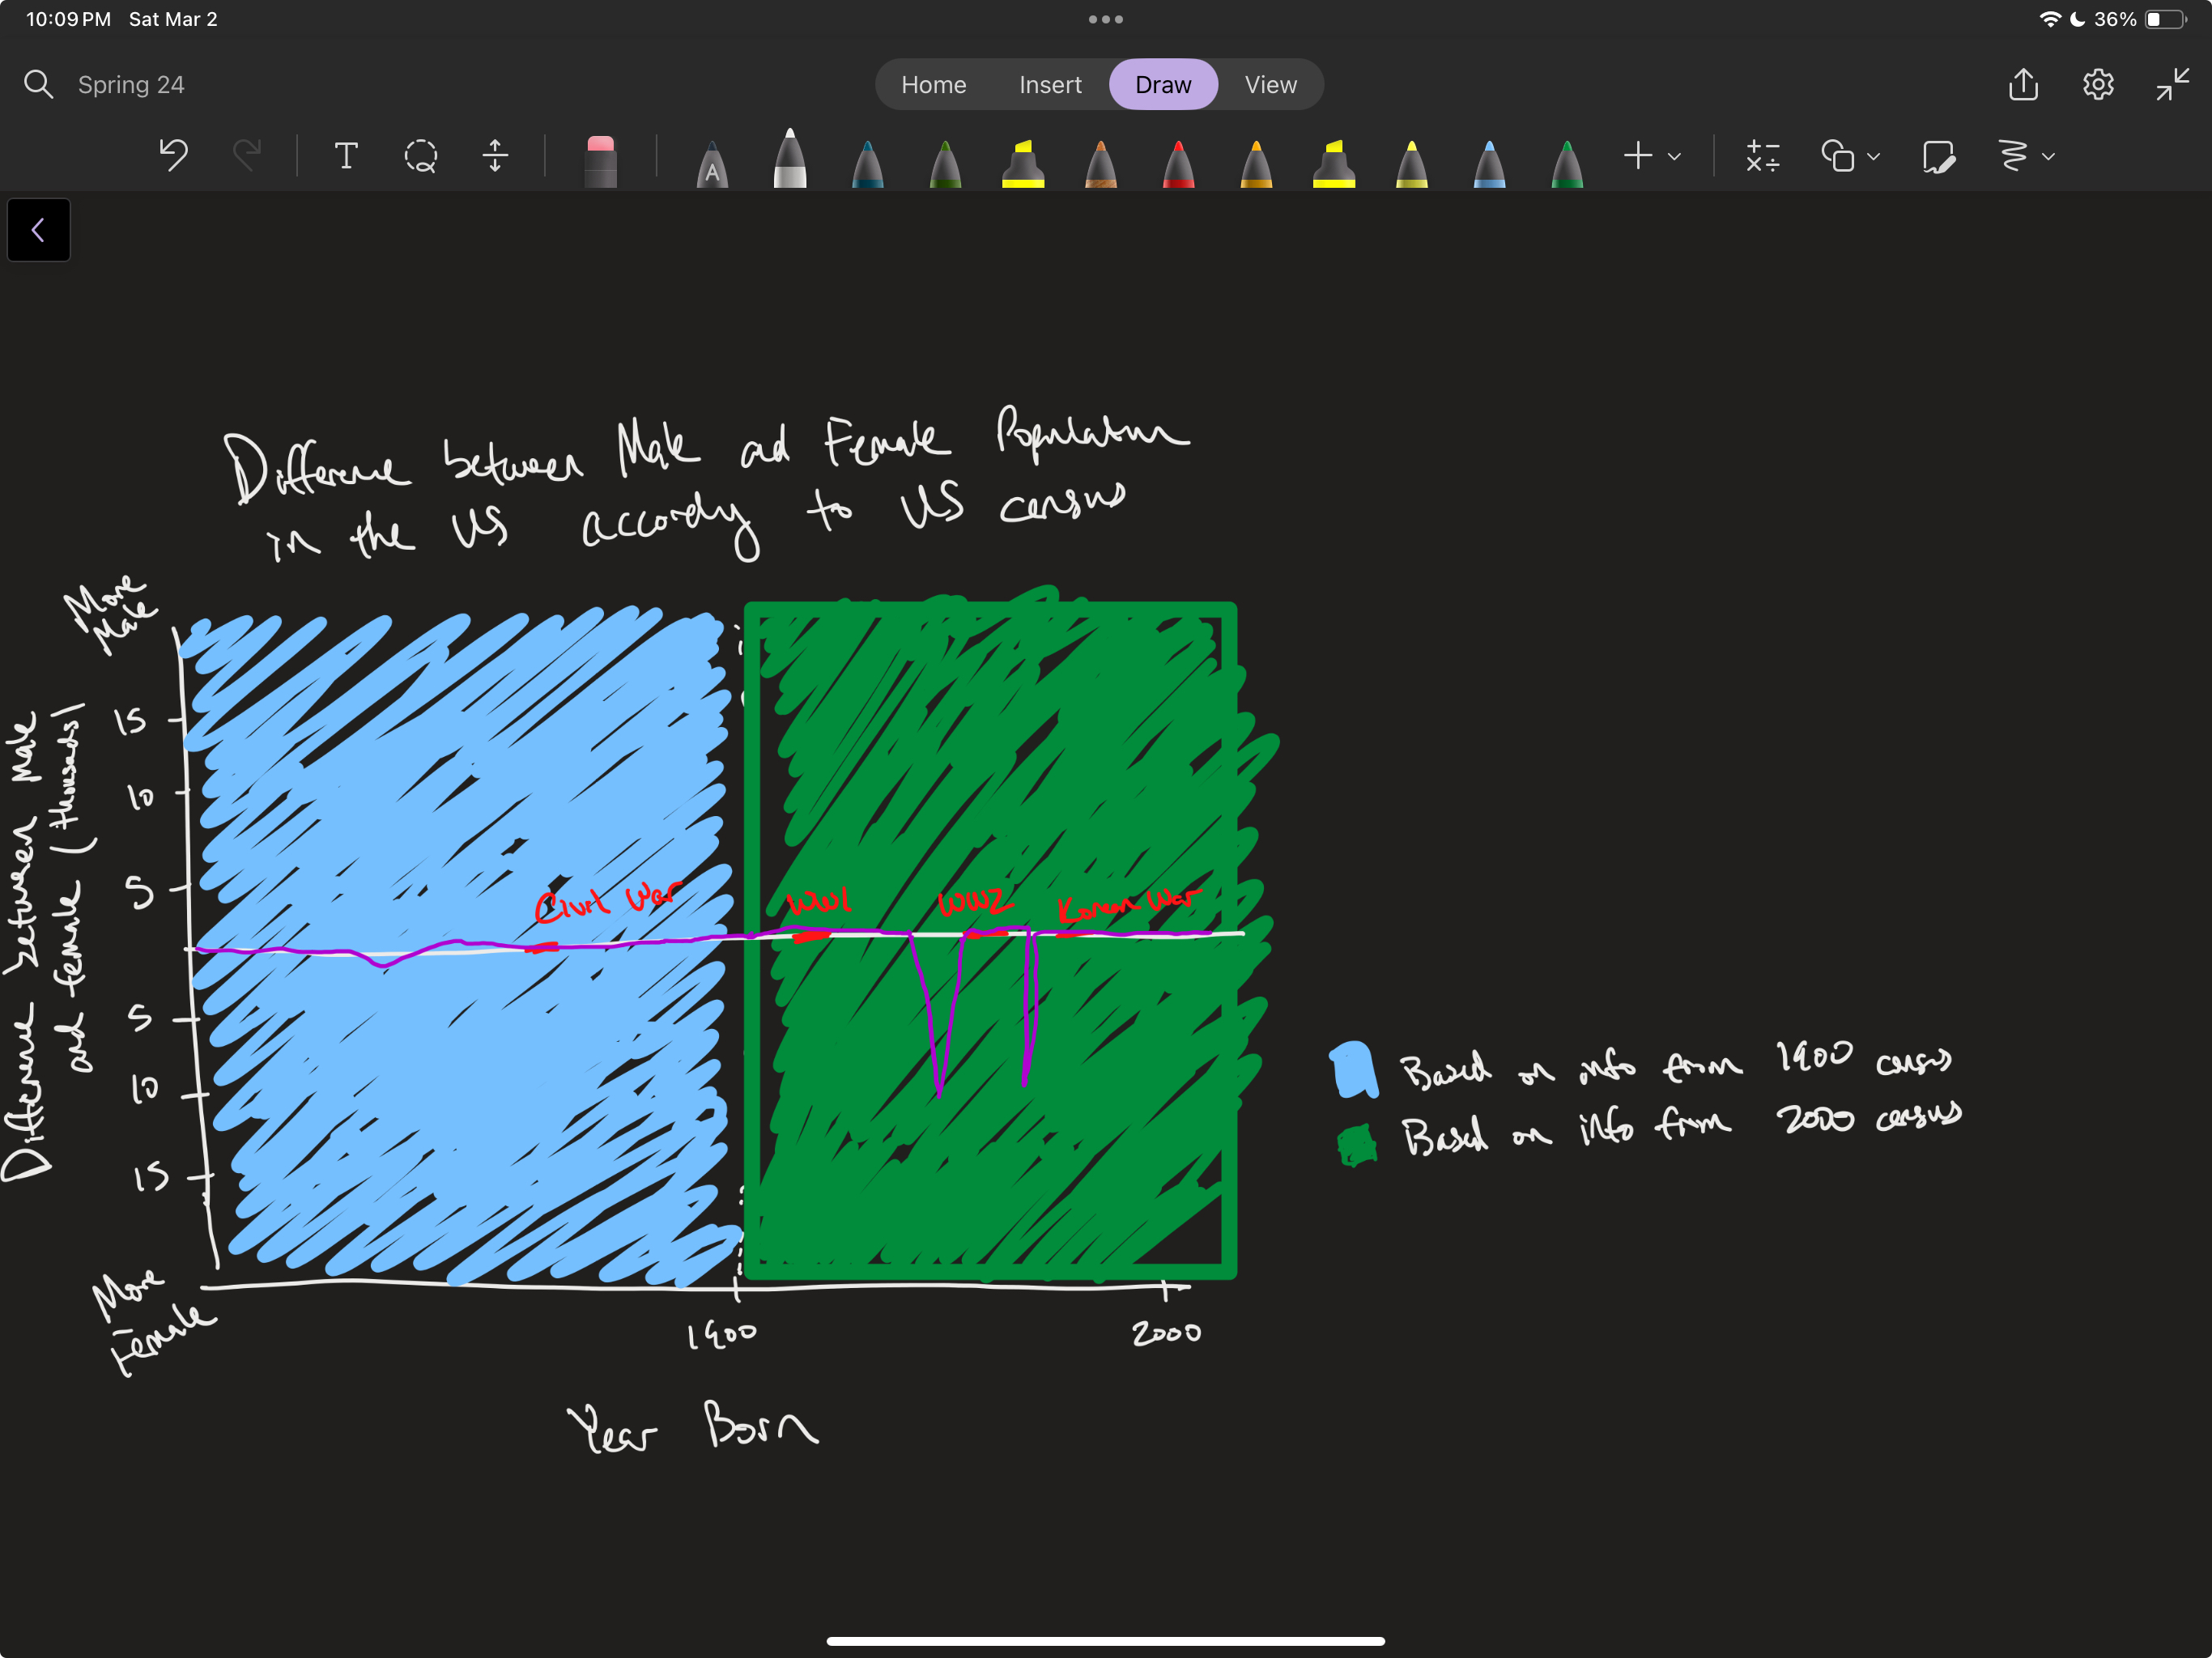 10:09 PM Sat Mar 2
36%
Spring 24
Home Insert Draw View
T
A
Difference between Male and Female Population
in the US according to US census
More
Male
15
10
5
5
10
15
More
Female
Difference between Male
and female (thousands)
Civil War
WW1
WW2
Korean War
1900
2000
Year Born
Based on info from 1900 census
Based on info from 2000 census